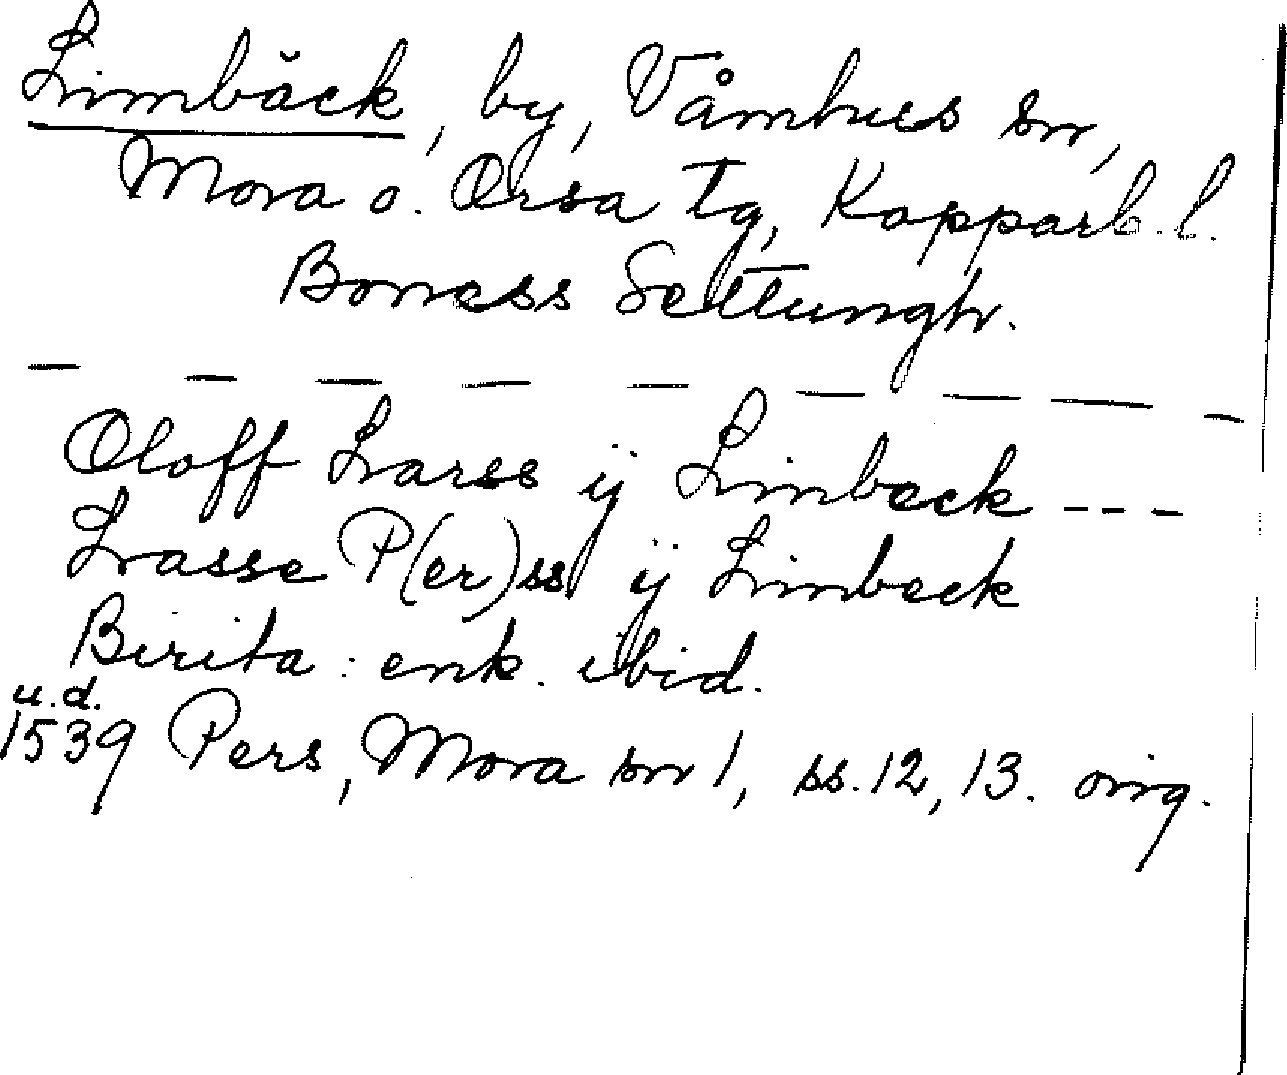 Limbäck, by, Våmhus sn,
Mora o. Orsa tg, Kopparb. l.
Boness Settungh.
— — — — — — — — —
Oloff Larss ÿ Limbeck ---
Lasse P(er)ss ÿ Limbeck
Birita : enk. ibid.
u.d.
1539 Pers, Mora sn 1, ss. 12, 13. orig.